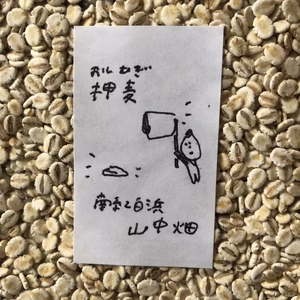 おしむぎ
押麦
南まく白浜
山中畑